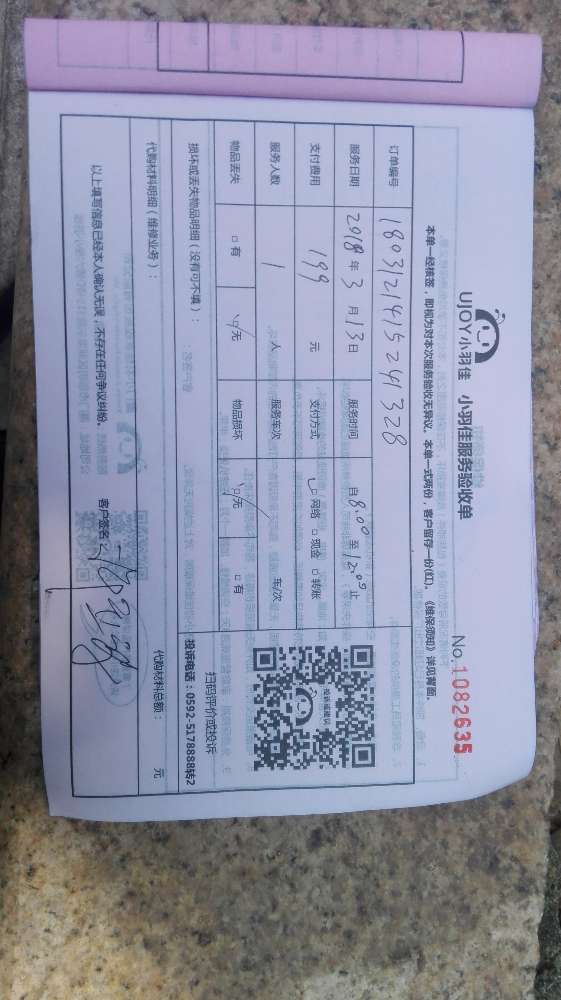 UJOY小羽佳 小羽佳服务验收单 No.1082635
本单一经核签，即视为对本次服务验收无异议。本单一式两份，客户留存一份(红)。《维保须知》详见背面。
订单编号 18031214152241328
服务日期 2018年3月13日 服务时间 自8:00至12:00止
支付费用 199 元 支付方式 ☑网络 □现金 □转账
服务人数 1 人 服务车次 车/次
物品丢失 □有 ☑无 物品损坏 ☑无 □有
扫码评价或投诉
损坏或丢失物品明细（没有可不填）： 投诉电话：0592-5178888转2
代购材料明细（维修业务）： 代购材料总额： 元
以上填写信息已经本人确认无误，不存在任何争议纠纷。 客户签名：